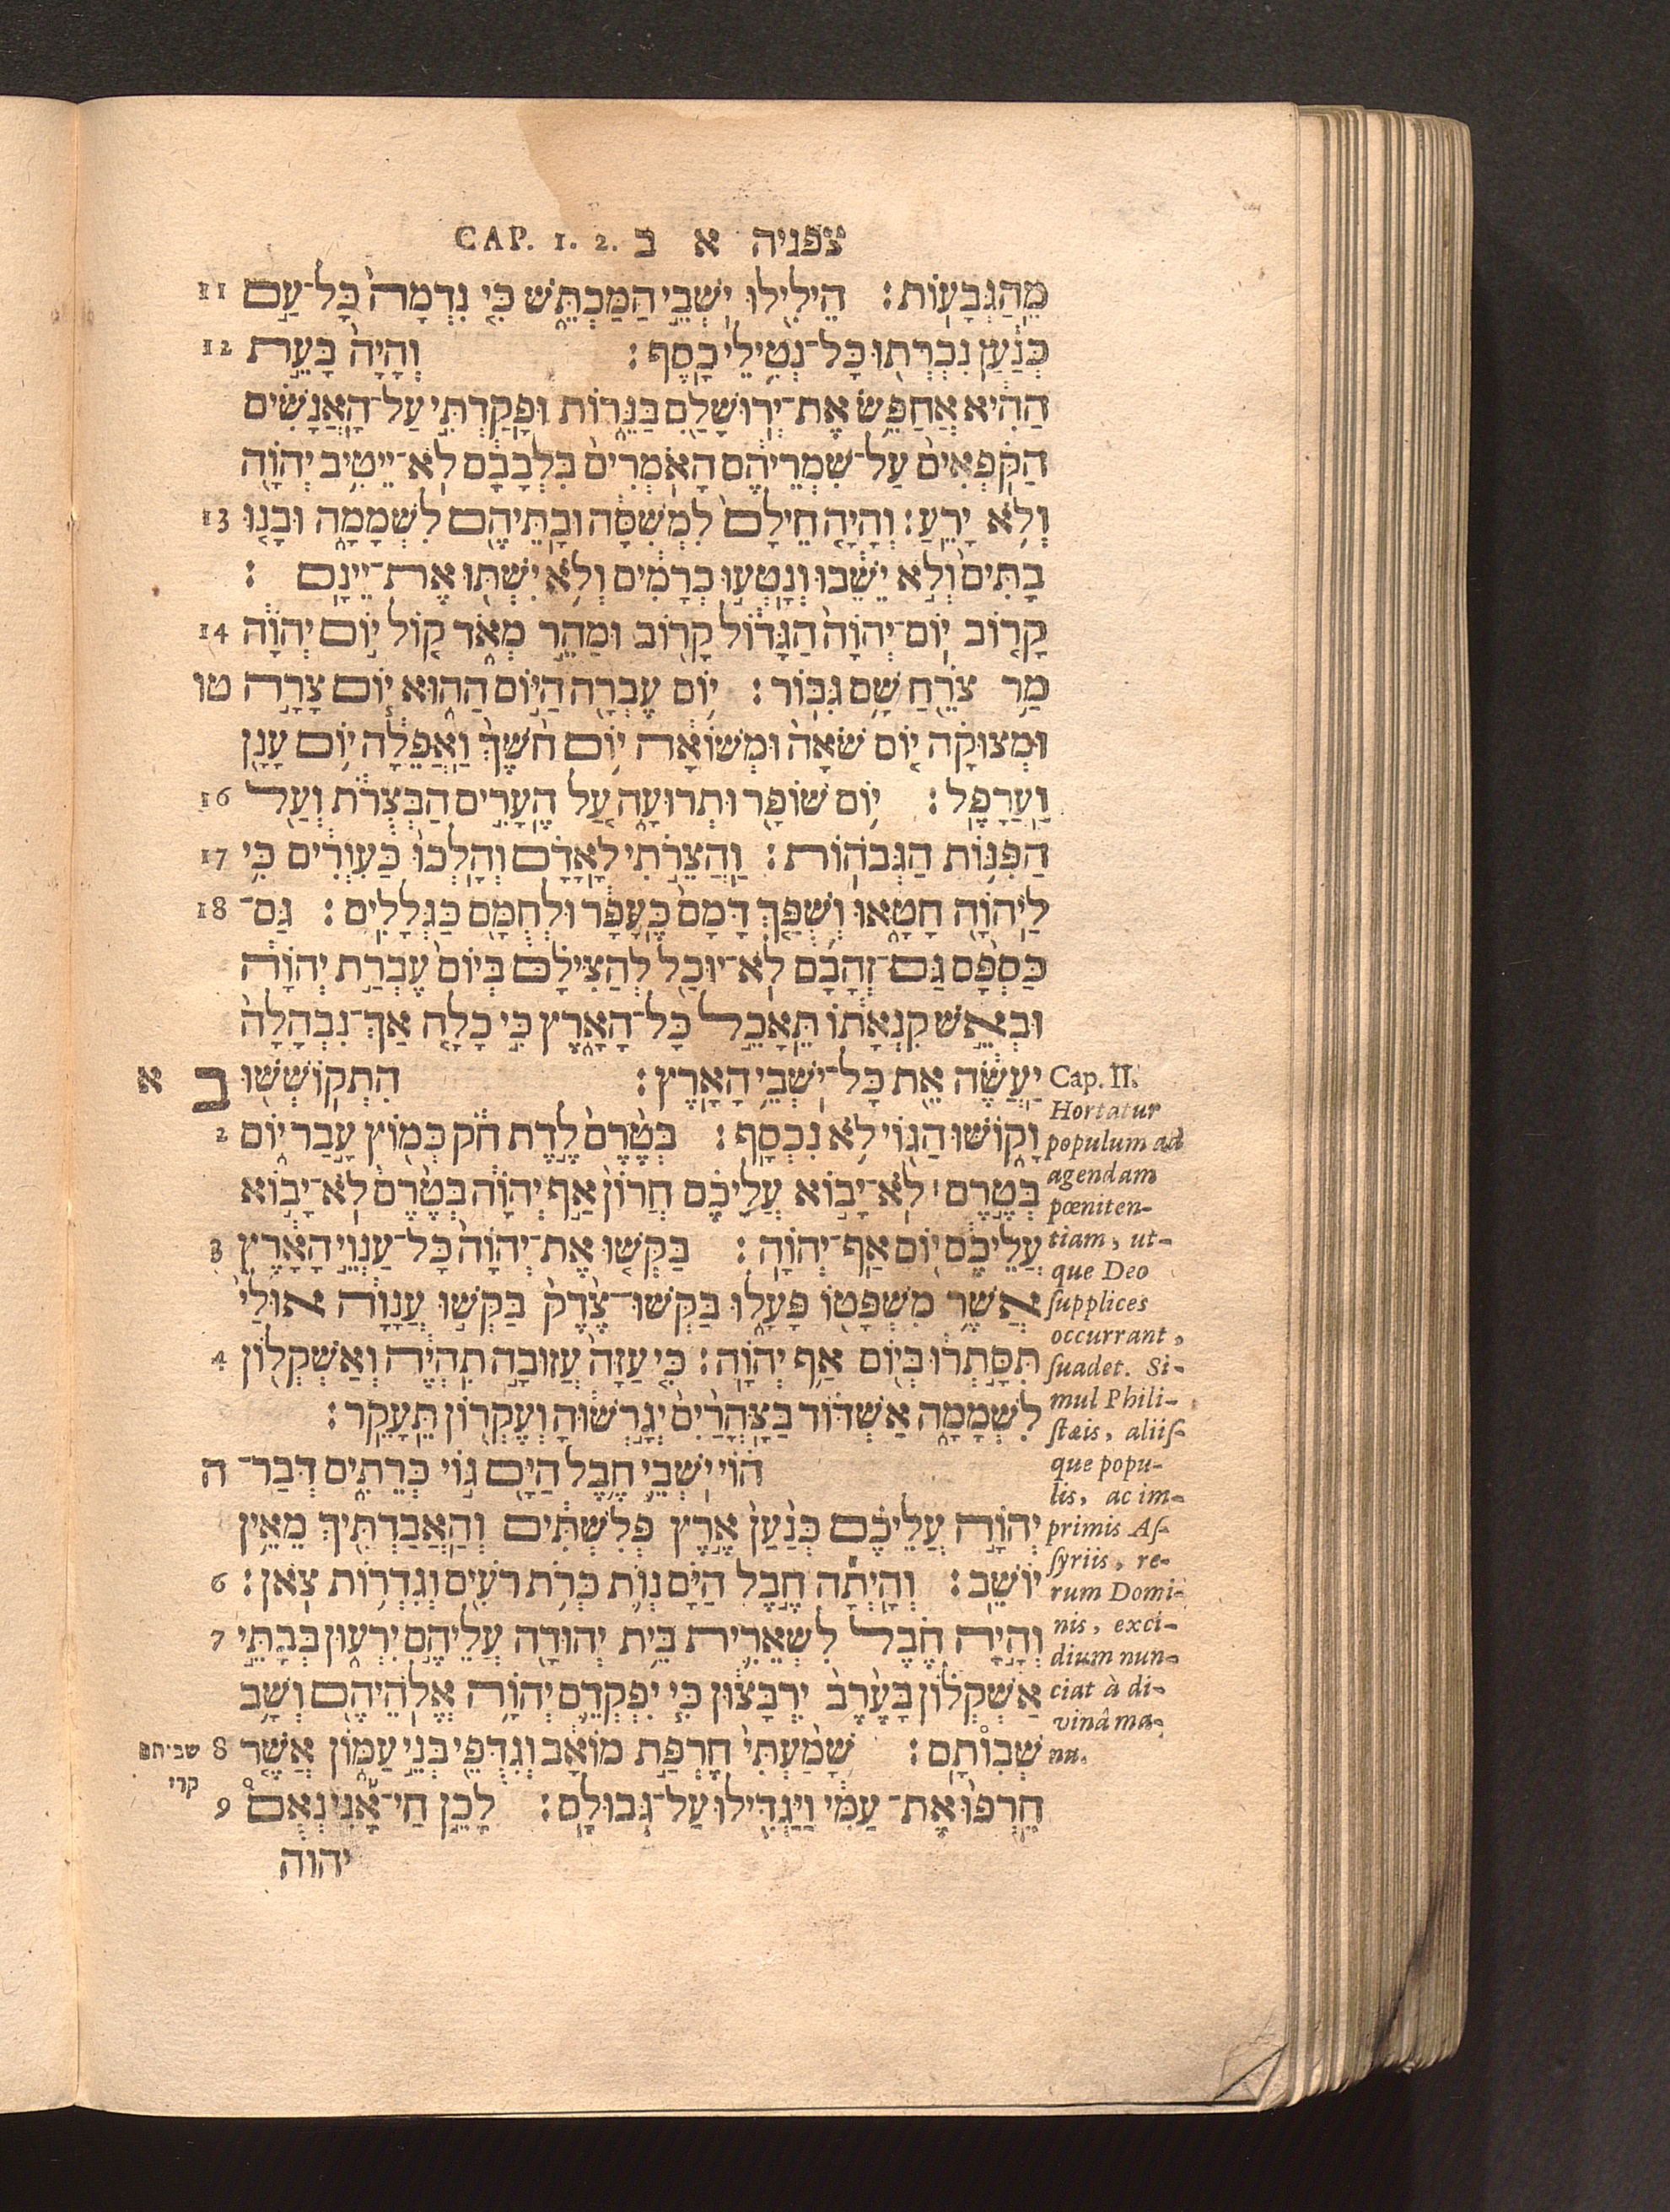 צפניה א ב CAP. 1. 2.
מֵהַגְּבָעוֹת׃ הֵילִילוּ יֹשְׁבֵי הַמַּכְתֵּשׁ כִּי נִדְמָה כָּל־עַם 11
כְּנַעַן נִכְרְתוּ כָּל־נְטִילֵי כָסֶף׃ וְהָיָה בָּעֵת 12
הַהִיא אֲחַפֵּשׂ אֶת־יְרוּשָׁלִַם בַּנֵּרוֹת וּפָקַדְתִּי עַל־הָאֲנָשִׁים
הַקֹּפְאִים עַל־שִׁמְרֵיהֶם הָאֹמְרִים בִּלְבָבָם לֹא־יֵיטִיב יְהוָה
וְלֹא יָרֵעַ׃ וְהָיָה חֵילָם לִמְשִׁסָּה וּבָתֵּיהֶם לִשְׁמָמָה וּבָנוּ 13
בָתִּים וְלֹא יֵשֵׁבוּ וְנָטְעוּ כְרָמִים וְלֹא יִשְׁתּוּ אֶת־יֵינָם׃
קָרוֹב יוֹם־יְהוָה הַגָּדוֹל קָרוֹב וּמַהֵר מְאֹד קוֹל יוֹם יְהוָה 14
מַר צֹרֵחַ שָׁם גִּבּוֹר׃ יוֹם עֶבְרָה הַיּוֹם הַהוּא יוֹם צָרָה טו
וּמְצוּקָה יוֹם שֹׁאָה וּמְשׁוֹאָה יוֹם חֹשֶׁךְ וַאֲפֵלָה יוֹם עָנָן
וַעֲרָפֶל׃ יוֹם שׁוֹפָר וּתְרוּעָה עַל הֶעָרִים הַבְּצֻרֹת וְעַל 16
הַפִּנּוֹת הַגְּבֹהוֹת׃ וַהֲצֵרֹתִי לָאָדָם וְהָלְכוּ כַּעִוְרִים כִּי 17
לַיהוָה חָטָאוּ וְשֻׁפַּךְ דָּמָם כֶּעָפָר וּלְחֻמָּם כַּגְּלָלִים׃ גַּם־ 18
כַּסְפָּם גַּם־זְהָבָם לֹא־יוּכַל לְהַצִּילָם בְּיוֹם עֶבְרַת יְהוָה
וּבְאֵשׁ קִנְאָתוֹ תֵּאָכֵל כָּל־הָאָרֶץ כִּי כָלָה אַךְ־נִבְהָלָה
יַעֲשֶׂה אֵת כָּל־יֹשְׁבֵי הָאָרֶץ׃ ב הִתְקוֹשְׁשׁוּ א
וָקוֹשּׁוּ הַגּוֹי לֹא נִכְסָף׃ בְּטֶרֶם לֶדֶת חֹק כְּמוֹץ עָבַר יוֹם 2
בְּטֶרֶם ׀ לֹא־יָבוֹא עֲלֵיכֶם חֲרוֹן אַף יְהוָה בְּטֶרֶם לֹא־יָבוֹא
עֲלֵיכֶם יוֹם אַף־יְהוָה׃ בַּקְּשׁוּ אֶת־יְהוָה כָּל־עַנְוֵי הָאָרֶץ 3
אֲשֶׁר מִשְׁפָּטוֹ פָּעָלוּ בַּקְּשׁוּ־צֶדֶק בַּקְּשׁוּ עֲנָוָה אוּלַי
תִּסָּתְרוּ בְּיוֹם אַף יְהוָה׃ כִּי עַזָּה עֲזוּבָה תִהְיֶה וְאַשְׁקְלוֹן 4
לִשְׁמָמָה אַשְׁדּוֹד בַּצָּהֳרַיִם יְגָרְשׁוּהָ וְעֶקְרוֹן תֵּעָקֵר׃
הוֹי יֹשְׁבֵי חֶבֶל הַיָּם גּוֹי כְּרֵתִים דְּבַר־ ה
יְהוָה עֲלֵיכֶם כְּנַעַן אֶרֶץ פְּלִשְׁתִּים וְהַאֲבַדְתִּיךְ מֵאֵין
יוֹשֵׁב׃ וְהָיְתָה חֶבֶל הַיָּם נְוֹת כְּרֹת רֹעִים וְגִדְרוֹת צֹאן׃ 6
וְהָיָה חֶבֶל לִשְׁאֵרִית בֵּית יְהוּדָה עֲלֵיהֶם יִרְעוּן בְּבָתֵּי 7
אַשְׁקְלוֹן בָּעֶרֶב יִרְבָּצוּן כִּי יִפְקְדֵם יְהוָה אֱלֹהֵיהֶם וְשָׁב
שְׁבוּתָם׃ שָׁמַעְתִּי חֶרְפַּת מוֹאָב וְגִדֻּפֵי בְּנֵי עַמּוֹן אֲשֶׁר 8 שביתם
קרי
חֵרְפוּ אֶת־עַמִּי וַיַּגְדִּילוּ עַל־גְּבוּלָם׃ לָכֵן חַי־אָנִי נְאֻם 9
יהוה
Cap. II.
Hortatur
populum ad
agendam
pœniten-
tiam, ut-
que Deo
ſupplices
occurrant,
ſuadet. Si-
mul Phili-
ſtæis, aliiſ-
que popu-
lis, ac im-
primis Aſ-
ſyriis, re-
rum Domi-
nis, exci-
dium nun-
ciat à di-
vinâ ma-
nu.